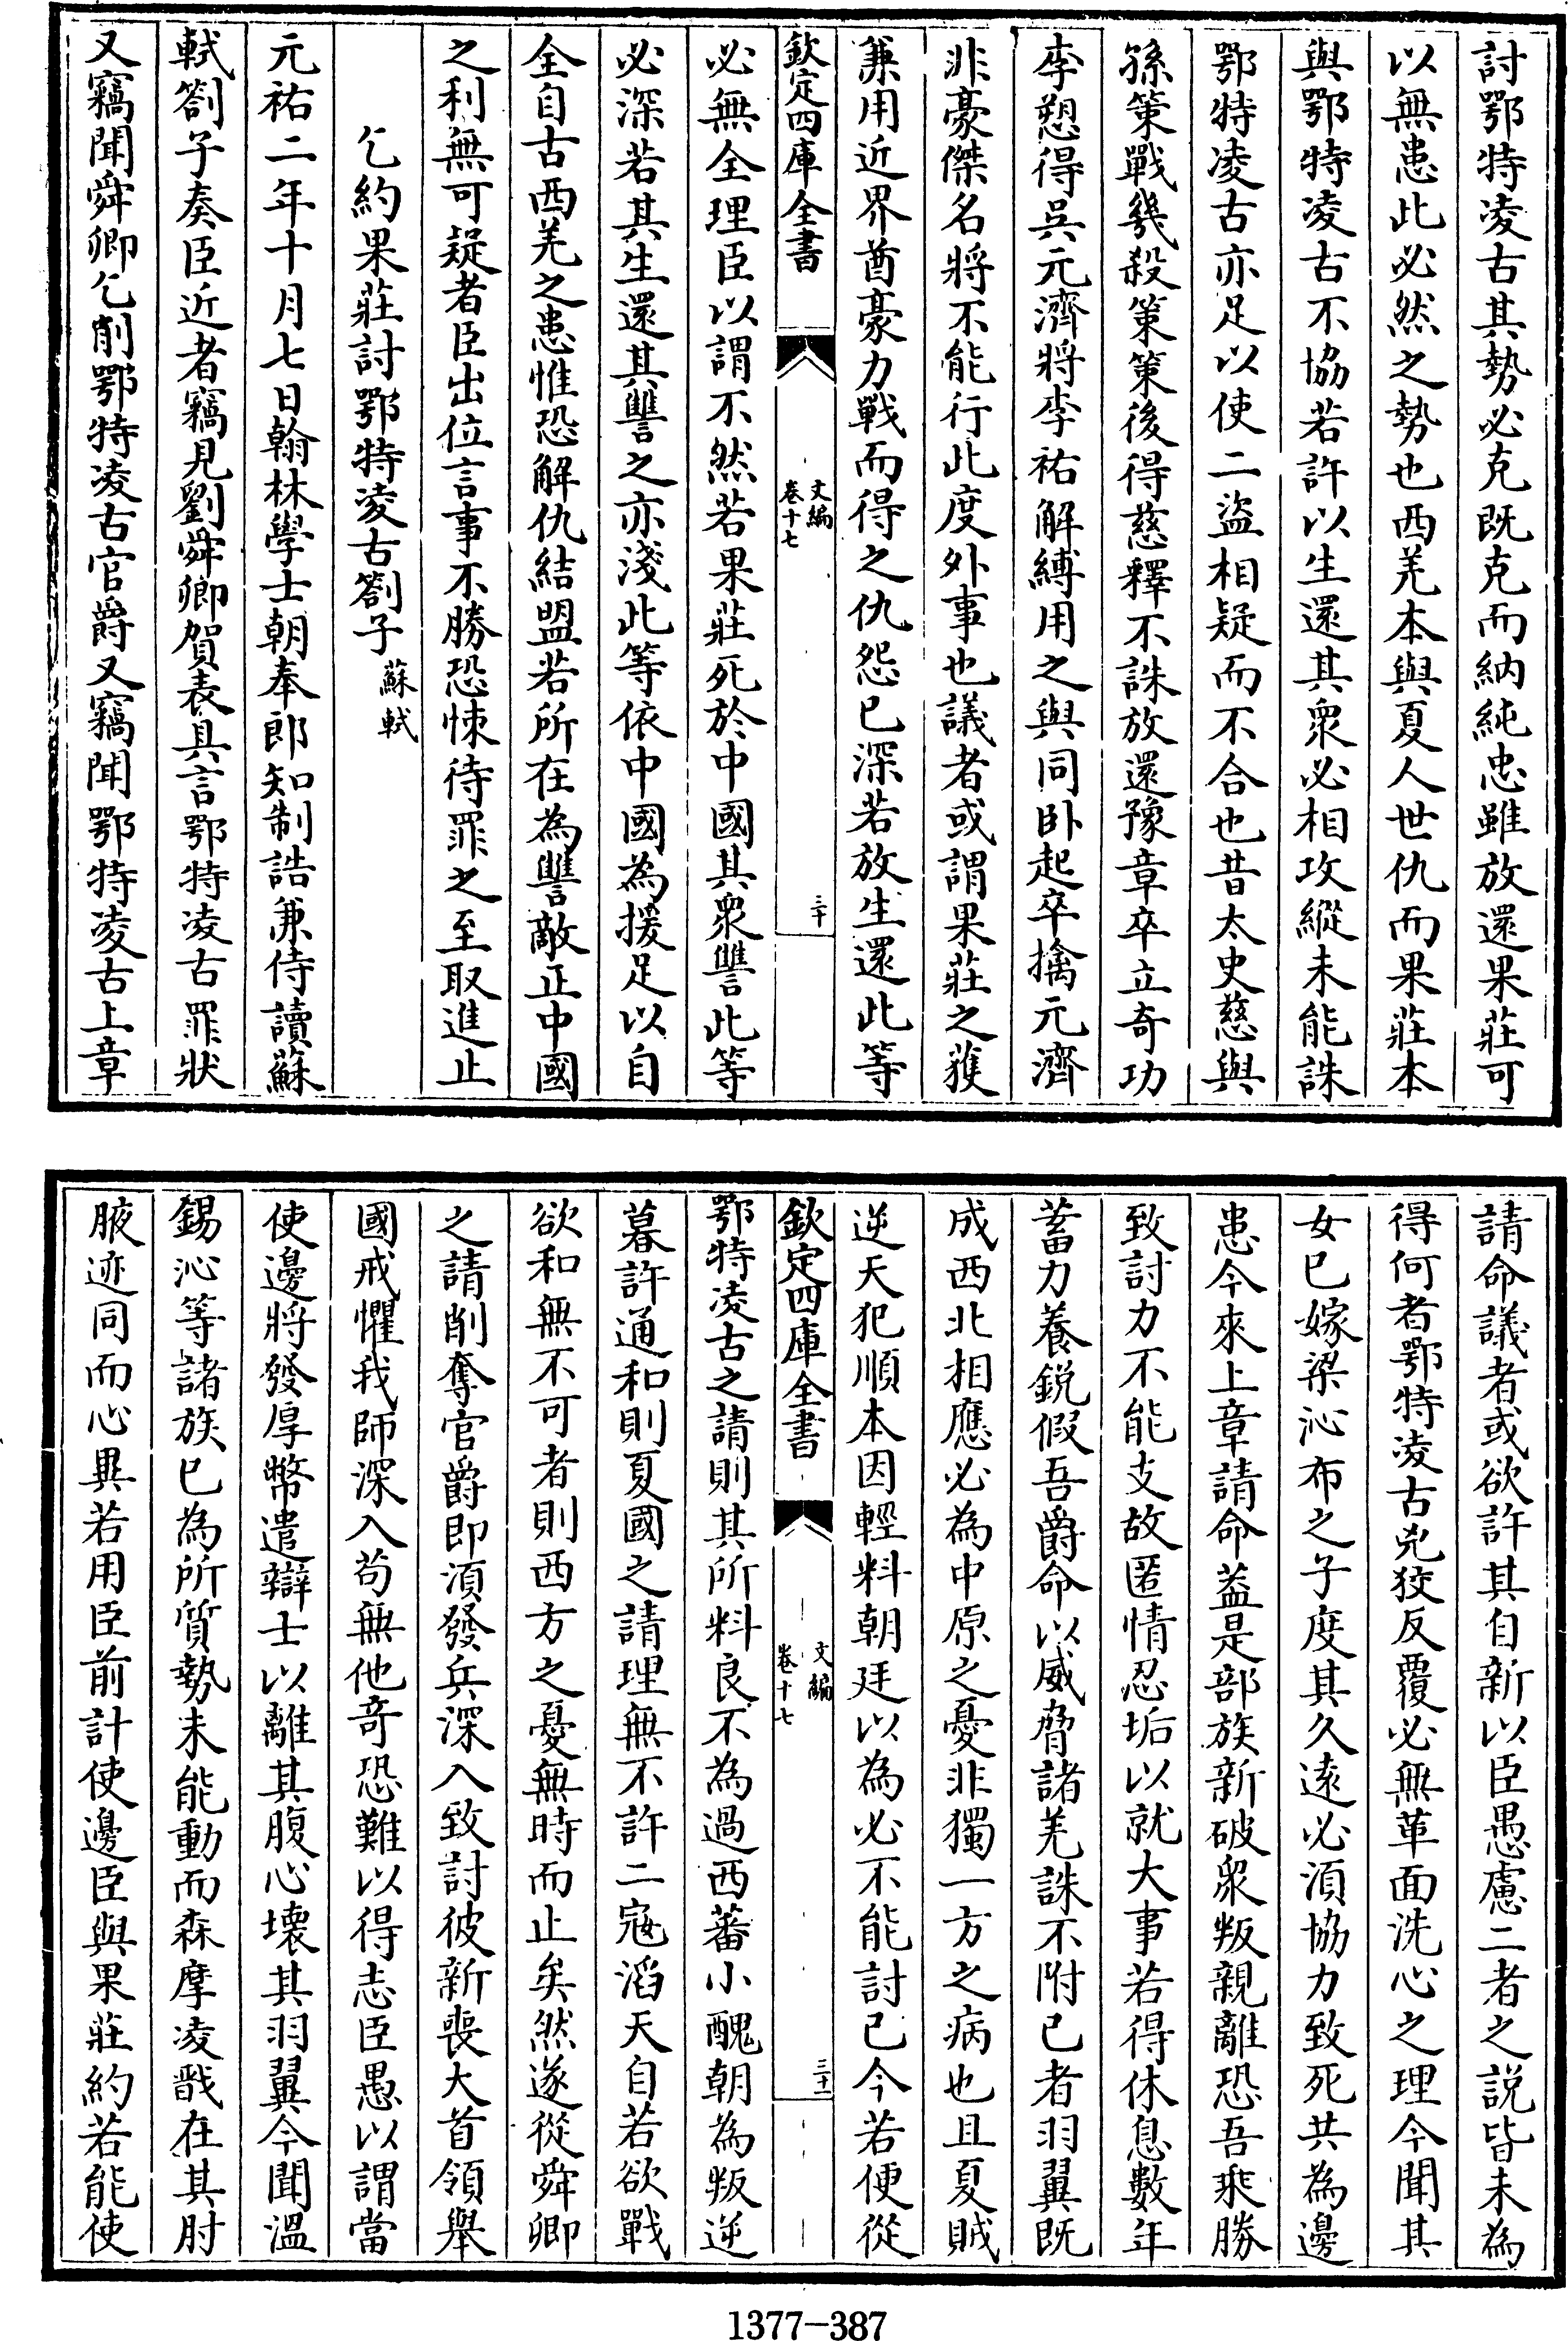 討鄂特凌古其勢必克既克而納純忠雖放還果莊可
以無患此必然之勢也西羌本與夏人世仇而果莊本
與鄂特凌古不協若許以生還其衆必相攻縱未能誅
鄂特凌古亦足以使二盜相疑而不合也昔太史慈與
孫策戰幾殺策策後得慈釋不誅放還豫章卒立奇功
李愬得吳元濟將李祐解縛用之與同卧起卒擒元濟
非豪傑名將不能行此度外事也議者或謂果莊之獲
兼用近界酋豪力戰而得之仇怨已深若放生還此等
欽定四庫全書
文編
卷十七
三十
必無全理臣以謂不然若果莊死於中國其衆讐此等
必深若其生還其讐之亦淺此等依中國為援足以自
全自古西羌之患惟恐解仇結盟若所在為讐敵正中國
之利無可疑者臣出位言事不勝恐悚待罪之至取進止
乞約果莊討鄂特凌古劄子 蘇軾
元祐二年十月七日翰林學士朝奉郎知制誥兼侍讀蘇
軾劄子奏臣近者竊見劉舜卿賀表具言鄂特凌古罪狀
又竊聞舜卿乞削鄂特凌古官爵又竊聞鄂特凌古上章
請命議者或欲許其自新以臣愚慮二者之說皆未為
得何者鄂特凌古兇狡反覆必無革面洗心之理今聞其
女已嫁梁沁布之子度其久遠必湏協力致死共為邊
患今來上章請命葢是部族新破衆叛親離恐吾乘勝
致討力不能支故匿情忍垢以就大事若得休息數年
蓄力養銳假吾爵命以威脅諸羌誅不附已者羽翼既
成西北相應必為中原之憂非獨一方之病也且夏賊
逆天犯順本因輕料朝廷以為必不能討已今若便從
欽定四庫全書
文編
卷十七
三十一
鄂特凌古之請則其所料良不為過西蕃小醜朝為叛逆
暮許通和則夏國之請理無不許二寇滔天自若欲戰
欲和無不可者則西方之憂無時而止矣然遂從舜卿
之請削奪官爵即湏發兵深入致討彼新喪大首領舉
國戒懼我師深入苟無他竒恐難以得志臣愚以謂當
使邊將發厚幣遣辯士以離其腹心壊其羽翼今聞溫
錫沁等諸族已為所質勢未能動而森摩凌戬在其肘
腋迹同而心異若用臣前計使邊臣與果莊約若能使
1377-387